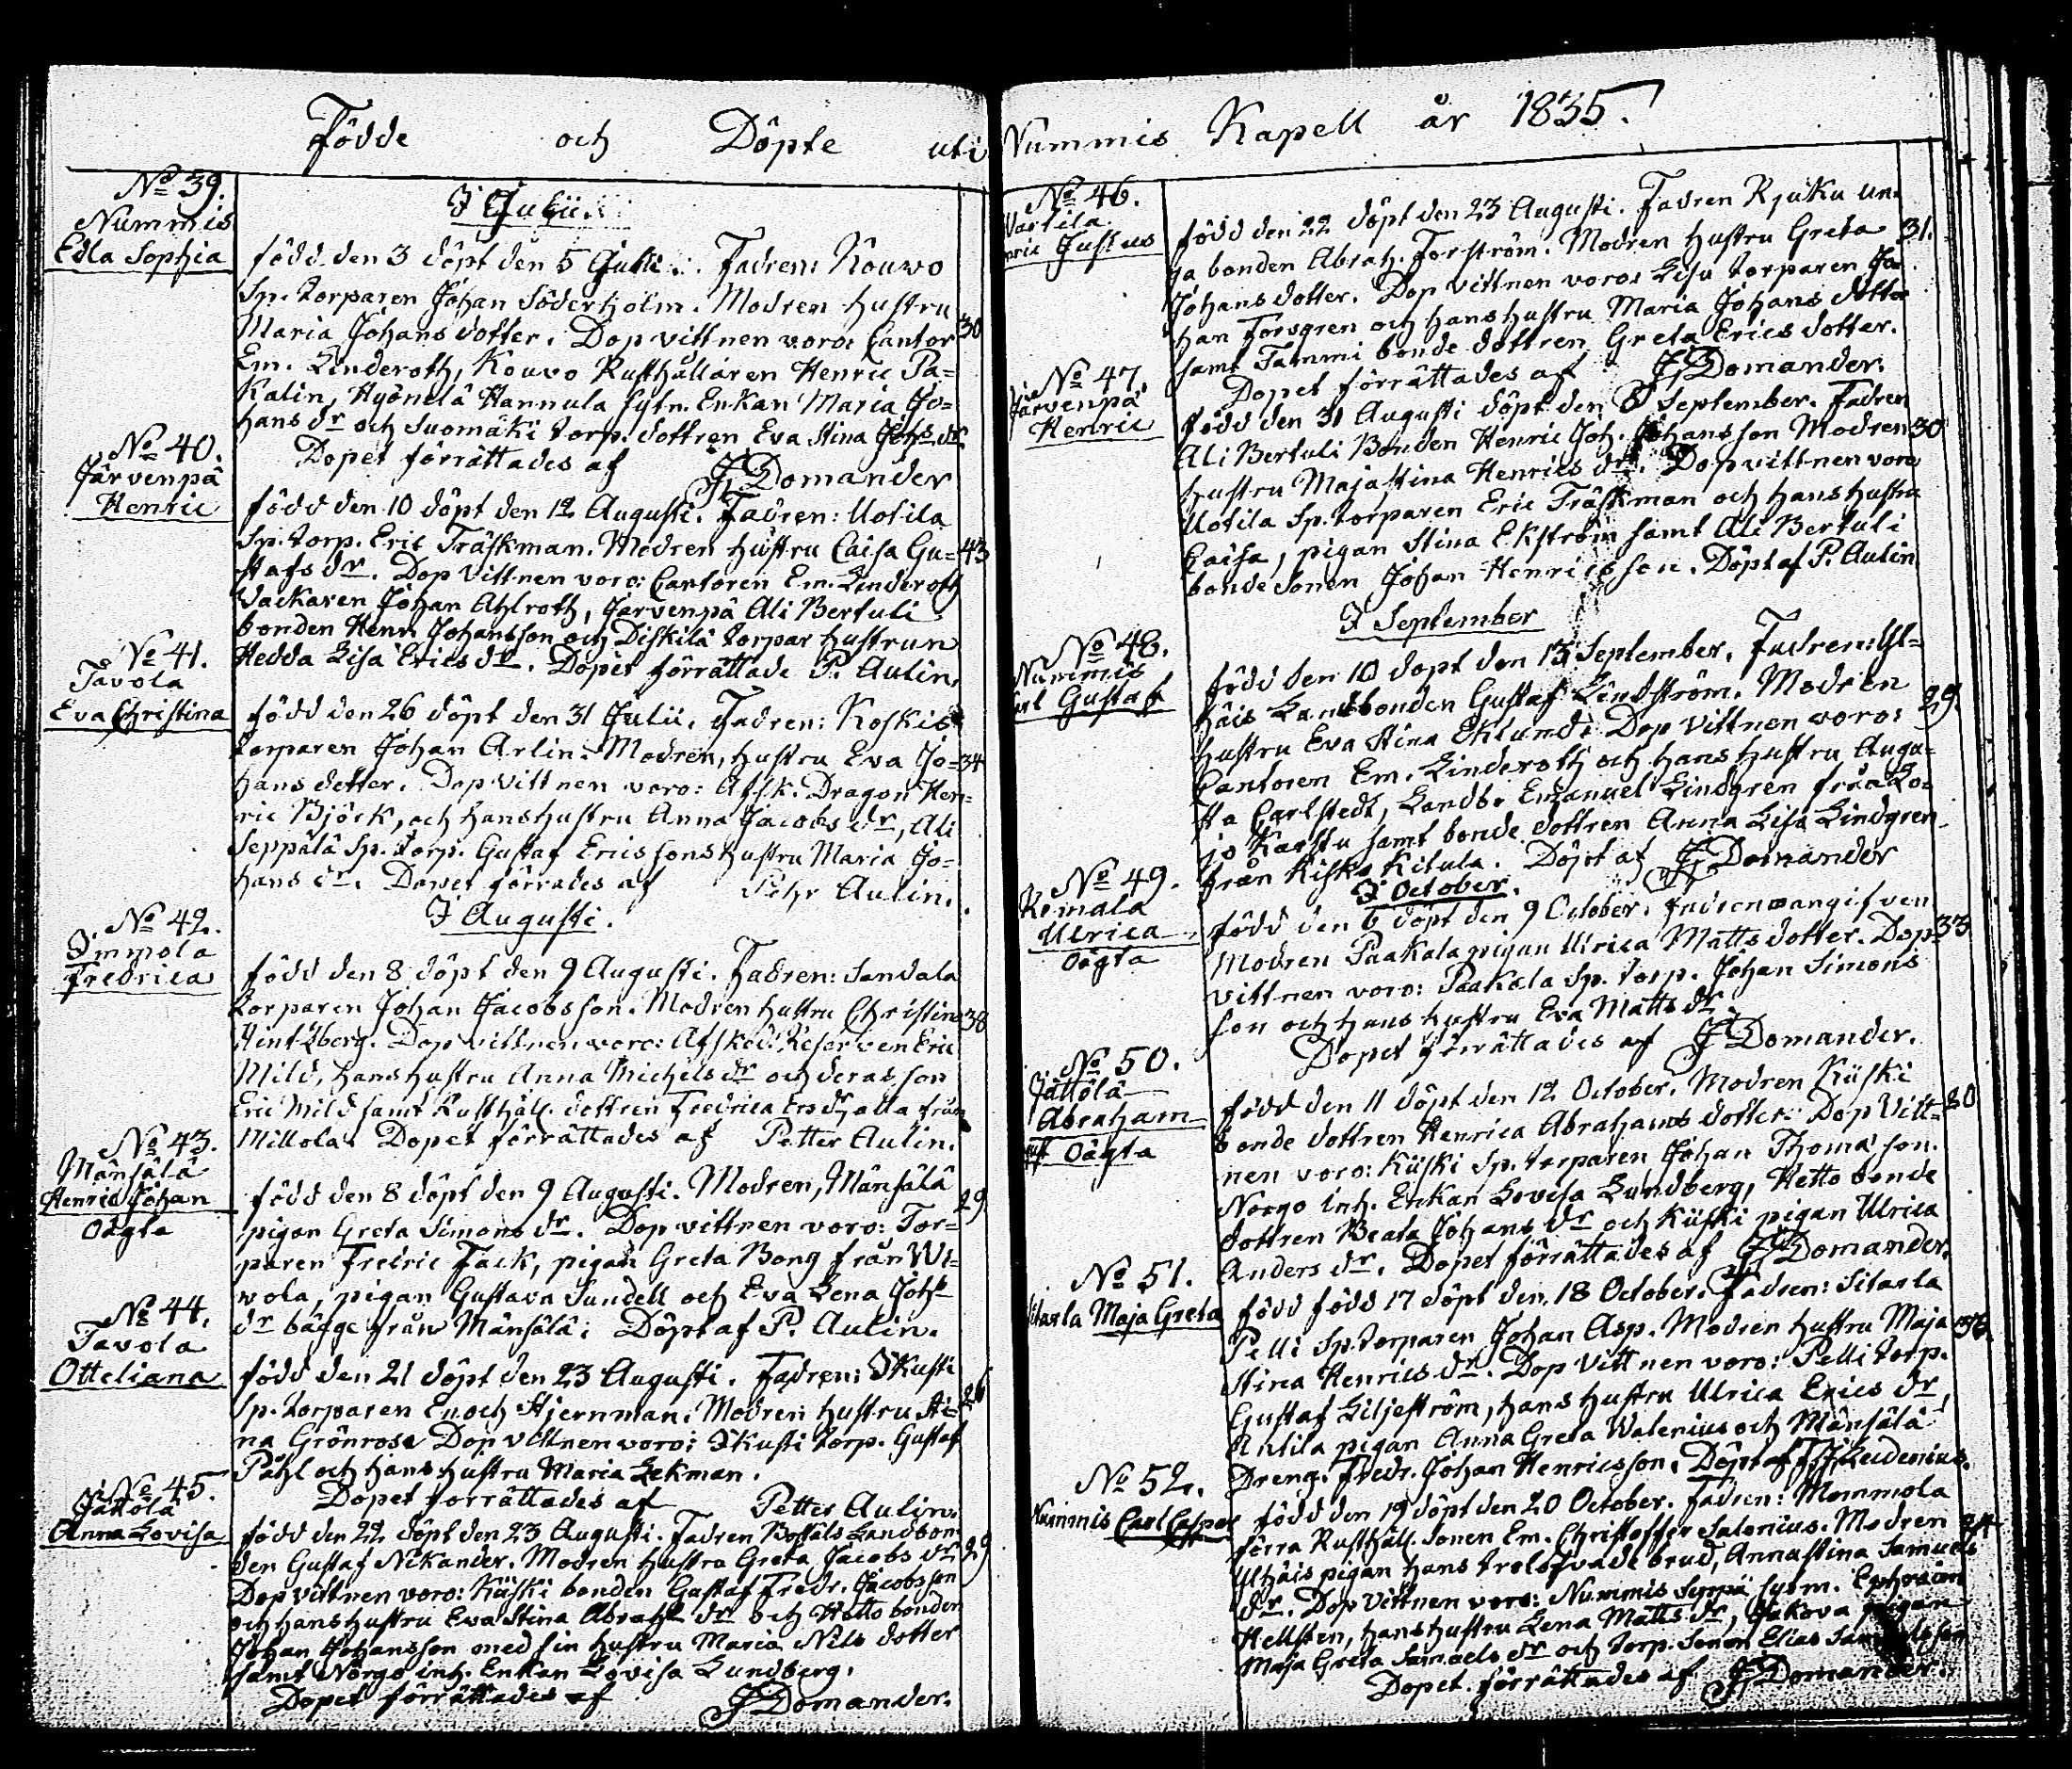 Födde och Döpte uti Nummis Kapell år 1835.
No 39.
Nummis
Edla Sophia
I Julii.
född den 3 döpt den 5 Julii. Fadren: Kouwo
Sp. torparen Johan Söderholm. Modren hustru
Maria Johans dotter. Dop vittnen voro: Cantor 30
Em. Linderoth, Kouvo Rusthållaren Henric Pa=
kalin, Hyönelä Hannula sytn. Enkan Maria Jo=
hans dr och Suomäki torp. dottren Eva Stina Johs dr
Dopet förrättades af JDomander
No 40.
Järvenpä
Henric
född den 10 döpt den 12 Augusti. Fadren: Uotila
Sp. torp. Eric Träskman. Modren hustru Caisa Gu= 43
stafs dr. Dop vittnen voro: Cantoren Em. Linderoth
Vackaren Johan Ahlroth, Järvenpä Ali Bertuli
bonden Henr. Johansson och Diskilä torpar hustrun
Hedda Lisa Erics dr. Dopet förrättade P. Aulin.
No 41.
Tavola
Eva Christina
född den 26 döpt den 31 Julii. Fadren: Koskis
torparen Johan Arlin. Modren, hustru Eva Jo= 34
hans dotter. Dop vittnen voro: Afsk. Dragon Hen=
ric Björk, och hans hustru Anna Jacobs dr, Ali
Seppälä Sp. torp. Gustaf Ericssons hustru Maria Jo=
hans dr. Dopet förrades af Pehr Aulin.
I Augusti.
No 42.
Immola
Fredrica
född den 8 döpt den 9 Augusti. Fadren: Sandala
torparen Johan Jacobsson. Modren hustru Christina 38
Hentzberg. Dop vittnen voro: Afsked. Reserven Eric
Mild, hans hustru Anna Michels dr och deras son
Eric Mild samt Rusthåll. dottren Fredrica Ersdr, alla från
Millola. Dopet förrättades af Petter Aulin.
No 43.
Mänsälä
Henric Johan
Oägta
född den 8 döpt den 9 Augusti. Modren, Mänsälä 29
pigan Greta Simons dr. Dop vittnen voro: Tor=
paren Fredric Fack, pigan Greta Bong från Wi=
wola, pigan Gustava Sundell och Eva Lena Joh
dr bägge från Mänsälä. Döpt af P. Aulin.
No 44.
Tavola
Otteliana
född den 21 döpt den 23 Augusti. Fadren: Ikusti
Sp. torparen Enoch Stjernman. Modren hustru Sti= 26
na Grönroos. Dop vittnen voro: Ikusti torp. Gustaf
Påhl och hans hustru Maria Lekman.
Dopet förrättades af Petter Aulin.
No 45.
Jättölä
Anna Lovisa
född den 22 döpt den 23 Augusti. Fadren Boställs Landbon=
den Gustaf Nikander. Modren hustru Greta Jacobs dr 29
Dop vittnen voro: Kiiski bonden Gustaf Fredr. Jacobsson
och hans hustru Eva Stina Abrah. dr och Hetto bonden
Johan Johansson med sin hustru Maria Nils dotter
samt Norgo inh. Enkan Lovisa Lundberg.
Dopet förrättades af JDomander.
No 46.
Wartila
Justus
född den 22 döpt den 23 Augusti. Fadren Kjuku un=
ga bonden Abrah. Forström. Modren hustru Greta 31.
Johans dotter. Dop vittnen voro: Lisu torparen Jo=
han Forsgren och hans hustru Maria Johans dotter
samt Tammi bonde dottren Greta Erics dotter.
Dopet förrättades af JDomander.
No 47.
Järvenpä
Henric
född den 31 Augusti döpt den 8 September. Fadren
Ali Bertuli Bonden Henric Joh. Johansson Modren 30
hustru Majastina Henrics dr. Dop vittnen voro
Uotila Sp. torparen Eric Träskman och hans hustru
Caisa, pigan Stina Ekström samt Ali Bertuli
bonde sonen Johan Henricsson. Döpt af P. Aulin
I September
No 48.
Nummis
Carl Gustaf
född den 10 döpt den 13 September. Fadren: Yl=
häis Landbonden Gustaf Lindström. Modren 29.
hustru Eva Stina Eklund. Dop vittnen voro:
Cantoren Em. Linderoth och hans hustru Augu=
sta Carlstedt, Landb. Emanuel Lindgren från Lo=
jo Karstu samt bonde dottren Anna Lisa Lindgren
från Kisko Kitula. Döpt af JDomander
I October.
No 49.
Remala
Ulrica
Oägta
född den 6 döpt den 9 October. Fadren oangifven
Modren Paakala pigan Ulrica Matts dotter. Dop 33
vittnen voro: Paakala Sp. torp. Johan Simons
son och hans hustru Eva Matts dr.
Dopet förrättades af JDomander.
No 50.
Jättölä
Abraham
Oägta
född den 11 döpt den 12 October. Modren Kiiski
bonde dottren Henrica Abrahams dotter. Dop vitt= 20
nen voro: Kiiski Sp. torparen Johan Thomasson.
Norgo inh. Enkan Lovisa Lundberg, Hetto bonde
dottren Beata Johans dr och Kiiski pigan Ulrica
Anders dr. Dopet förrättades af JDomander.
No 51.
Sitarla Maja Greta
född född 17 döpt den 18 October. Fadren: Sitarla
Pelli Sp. torparen Johan Asp. Modren hustru Maja 36
Stina Henrics dr. Dop vittnen voro: Pelli torp.
Gustaf Liljeström, hans hustru Ulrica Erics dr,
Antila pigan Anna Greta Walenius och Mänsälä
Dreng. Fredr. Johan Henricsson. Döpt af Leidenius.
No 52.
Nummis Carl Casper
född den 19 döpt den 20 October. Fadren: Mommola
förra Rusthåll. sonen Em. Christoffer Salonius. Modren 24
Ylhäis pigan hans trolofvade brud, Annastina Samuels
dr. Dop vittnen voro: Nummis Seppä sytn. Ephraim
Hellsten, hans hustru Lena Matts dr, Jakova pigan
Maja Greta Samuels dr och torp. sonen Elias Samuelsson
Dopet förrättades af JDomander.